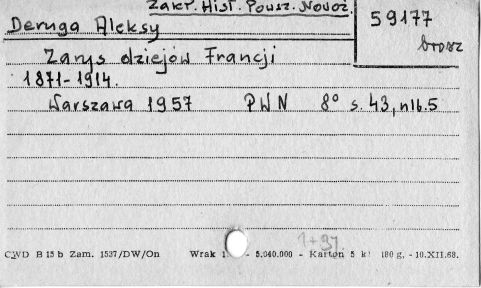 Zakł. Hist. Powsz. Nowoż.
59177
brosz
Deruga Aleksy
Zarys dziejów Francji
1871-1914.
Warszawa 1957 PWN 8° s. 43, nlb. 5
1+97.
CWD B 15 b Zam. 1537/DW/On Wrak 1 - 5.040.000 - Karton 5 kl 180 g. - 10.XII.68.